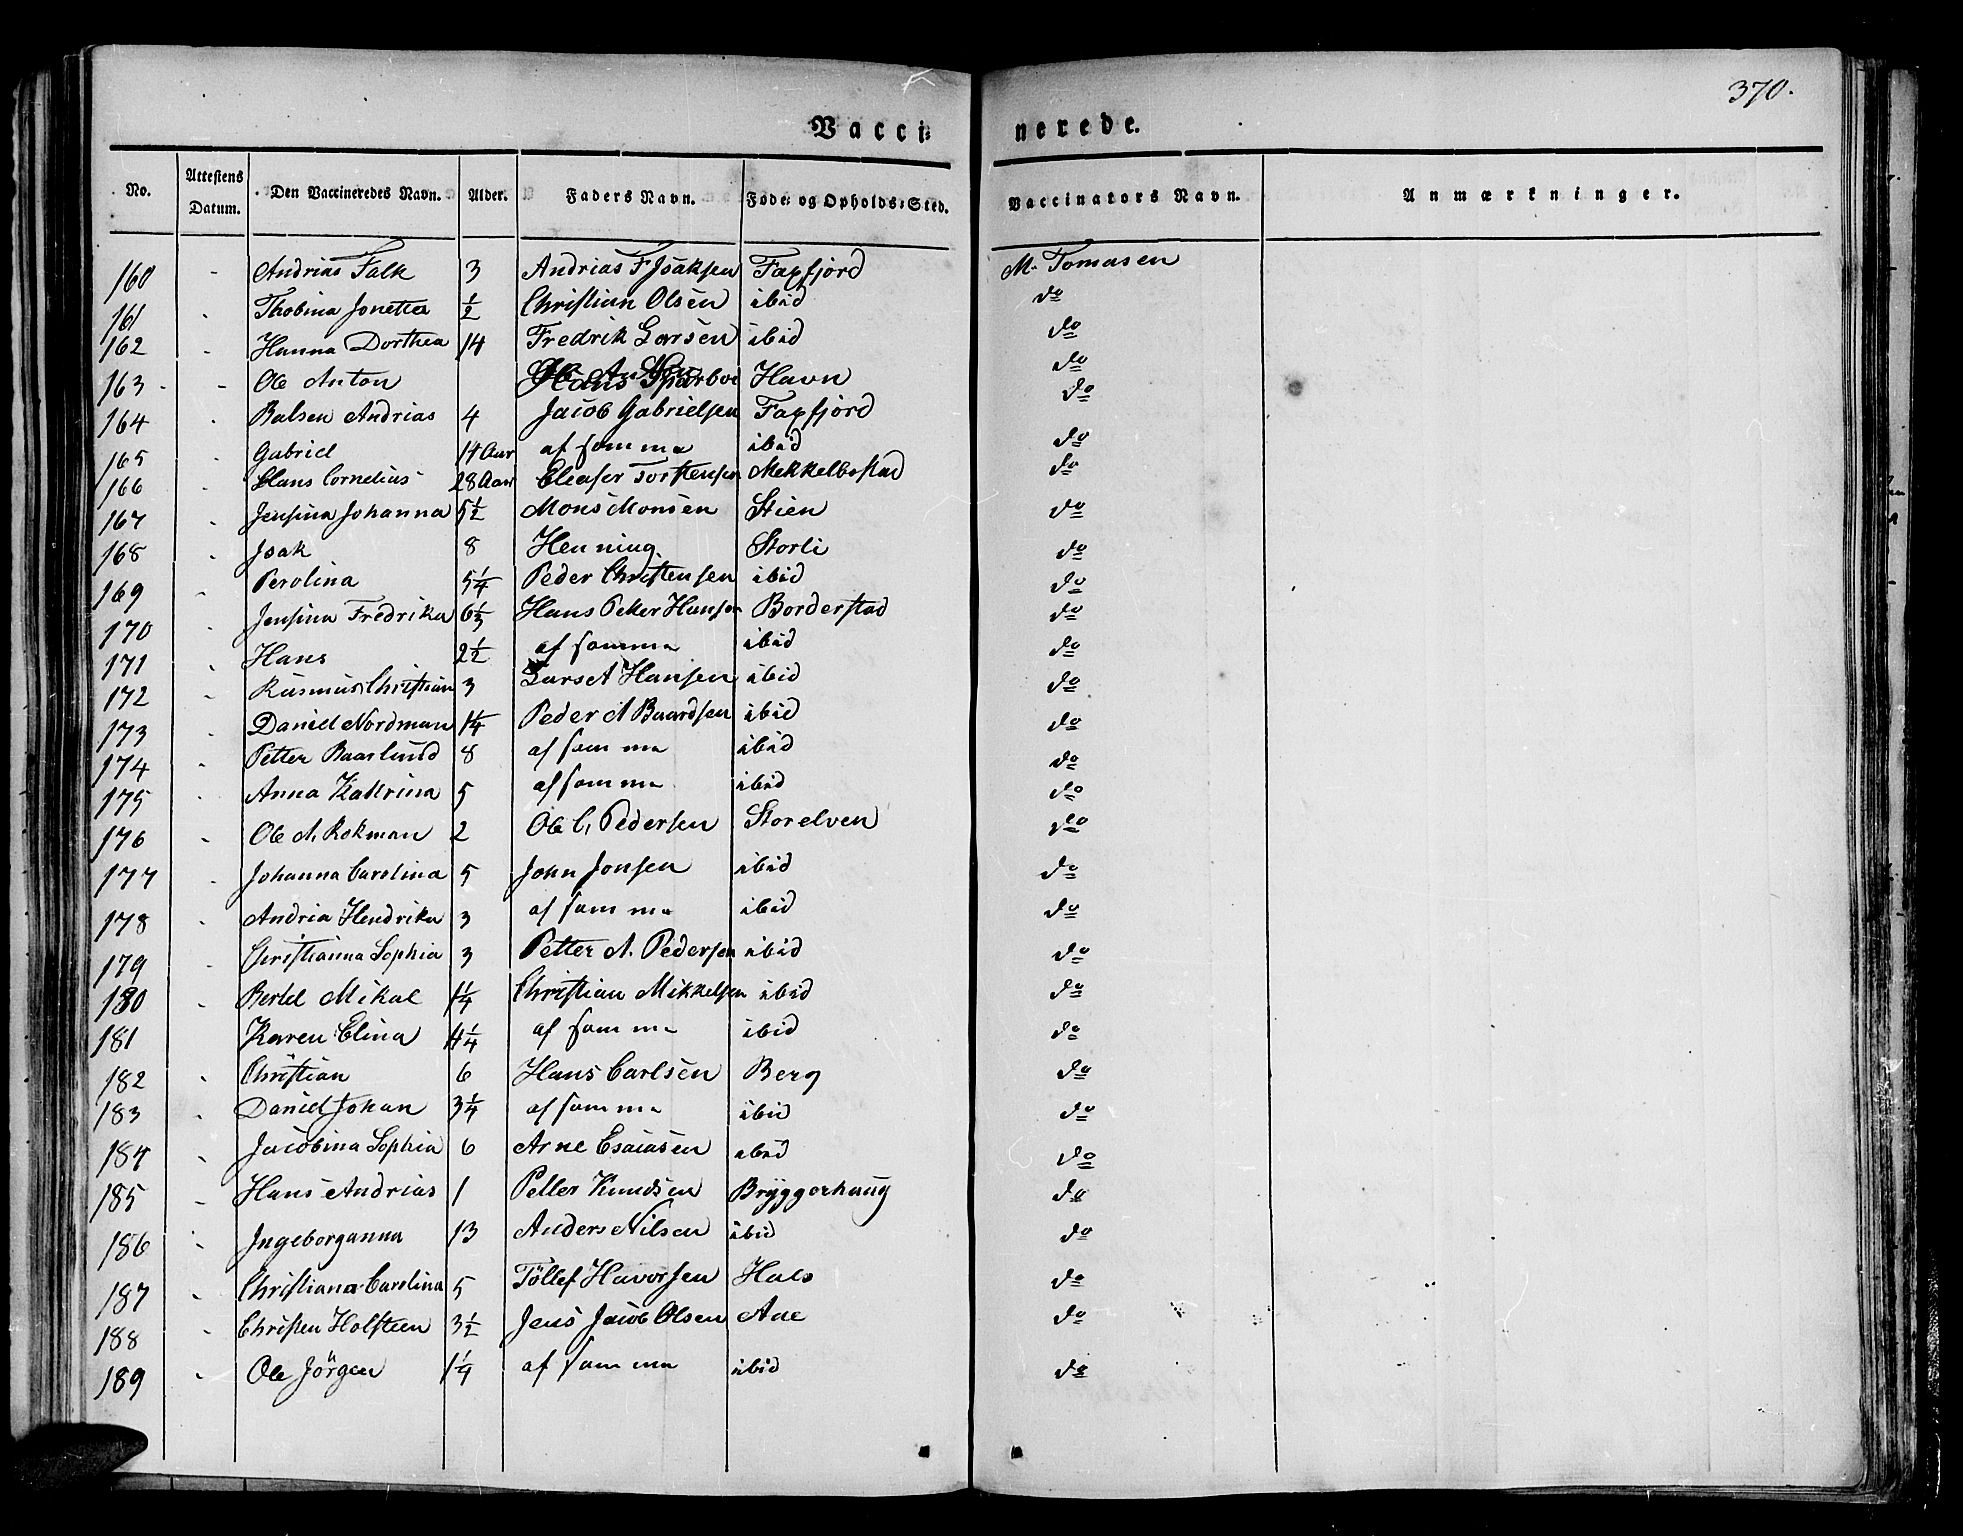 370.
Vacci- nerede.
No. Attestens Datum. Den Vaccineredes Navn. Alder. Faders Navn. Føde- og Opholds-Sted. Vaccinators Navn. Anmærkninger.
160 - Andrias Falk 3 Andrias F Jsaksen Faxfjord M. Tomasen
161 - Thobina Jonetta ½ Christian Olsen ibid do
162 - Hanna Dorthea 14 Fredrik Larsen ibid do
163 - - Ole Anton Hans Havn do
do
164 - Balsen Andrias 4 Jacob Gabrielsen Faxfjord
165 - Gabriel 14 Aar af samma ibid do
166 - Hans Cornelius 28 Aar Eleaser Torstensen Mekkelbostad do
167 - Jensina Johanna 5½ Mons Monsen Stien do
168 - Jsak 8 Henning Storli do
169 - Perolina 5¼ Peder Christensen ibid do
170 - Jensina Fredrika 6⅓ Hans Peter Hansen Borderstad do
171 - Hans 2½ af samma ibid do
172 - Rasmus Christian 3 Lars A Hansen ibid do
173 - Daniel Nordman 1¼ Peder A Baardsen ibid do
174 - Petter Baarlund 8 af samma ibid do
175 - Anna Katrina 5 af samma ibid do
176 - Ole A. Rokman 2 Ole C. Pedersen Storelven do
177 - Johanna Carolina 5 John Jonsen ibid do
178 - Andria Hendrika 3 af samma ibid do
179 - Christianna Sophia 3 Petter A. Pedersen ibid do
180 - Bertel Mikal 1¼ Christian Mikkelsen ibid do
181 Karen Elina 4¼ af samma ibid do
182 - Christian 6 Hans Carlsen Berg do
183 - Daniel Johan 3¼ af samma ibid do
184 - Jacobina Sophia 6 Arne Esaiasen ibid do
185 - Hans Andrias 1 Petter Knudsen Bryggerhaug do
186 - Ingeborganna 13 Anders Nilsen ibid do
187 - Christiana Carolina 5 Töllef Havorsen Hals do
188 - Christen Holsteen 3½ Jens Jacob Olsen Aae do
189 - Ole Jörgen 1¼ af samma ibid do